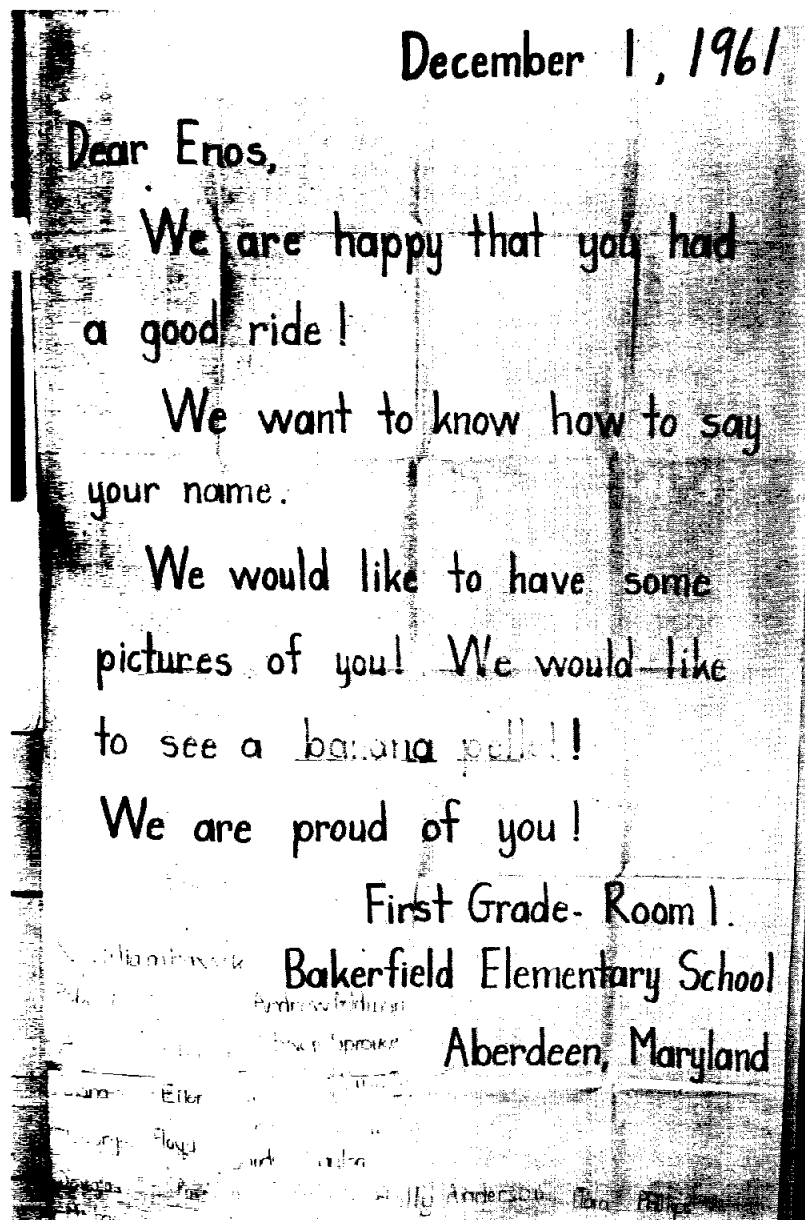 December 1, 1961
Dear Enos,
We are happy that you had
a good ride!
We want to know how to say
your name.
We would like to have some
pictures of you! We would like
to see a banana pellet!
We are proud of you!
First Grade- Room 1.
Bakerfield Elementary School
Aberdeen, Maryland
Eller
Floyd
Anderson Phillips